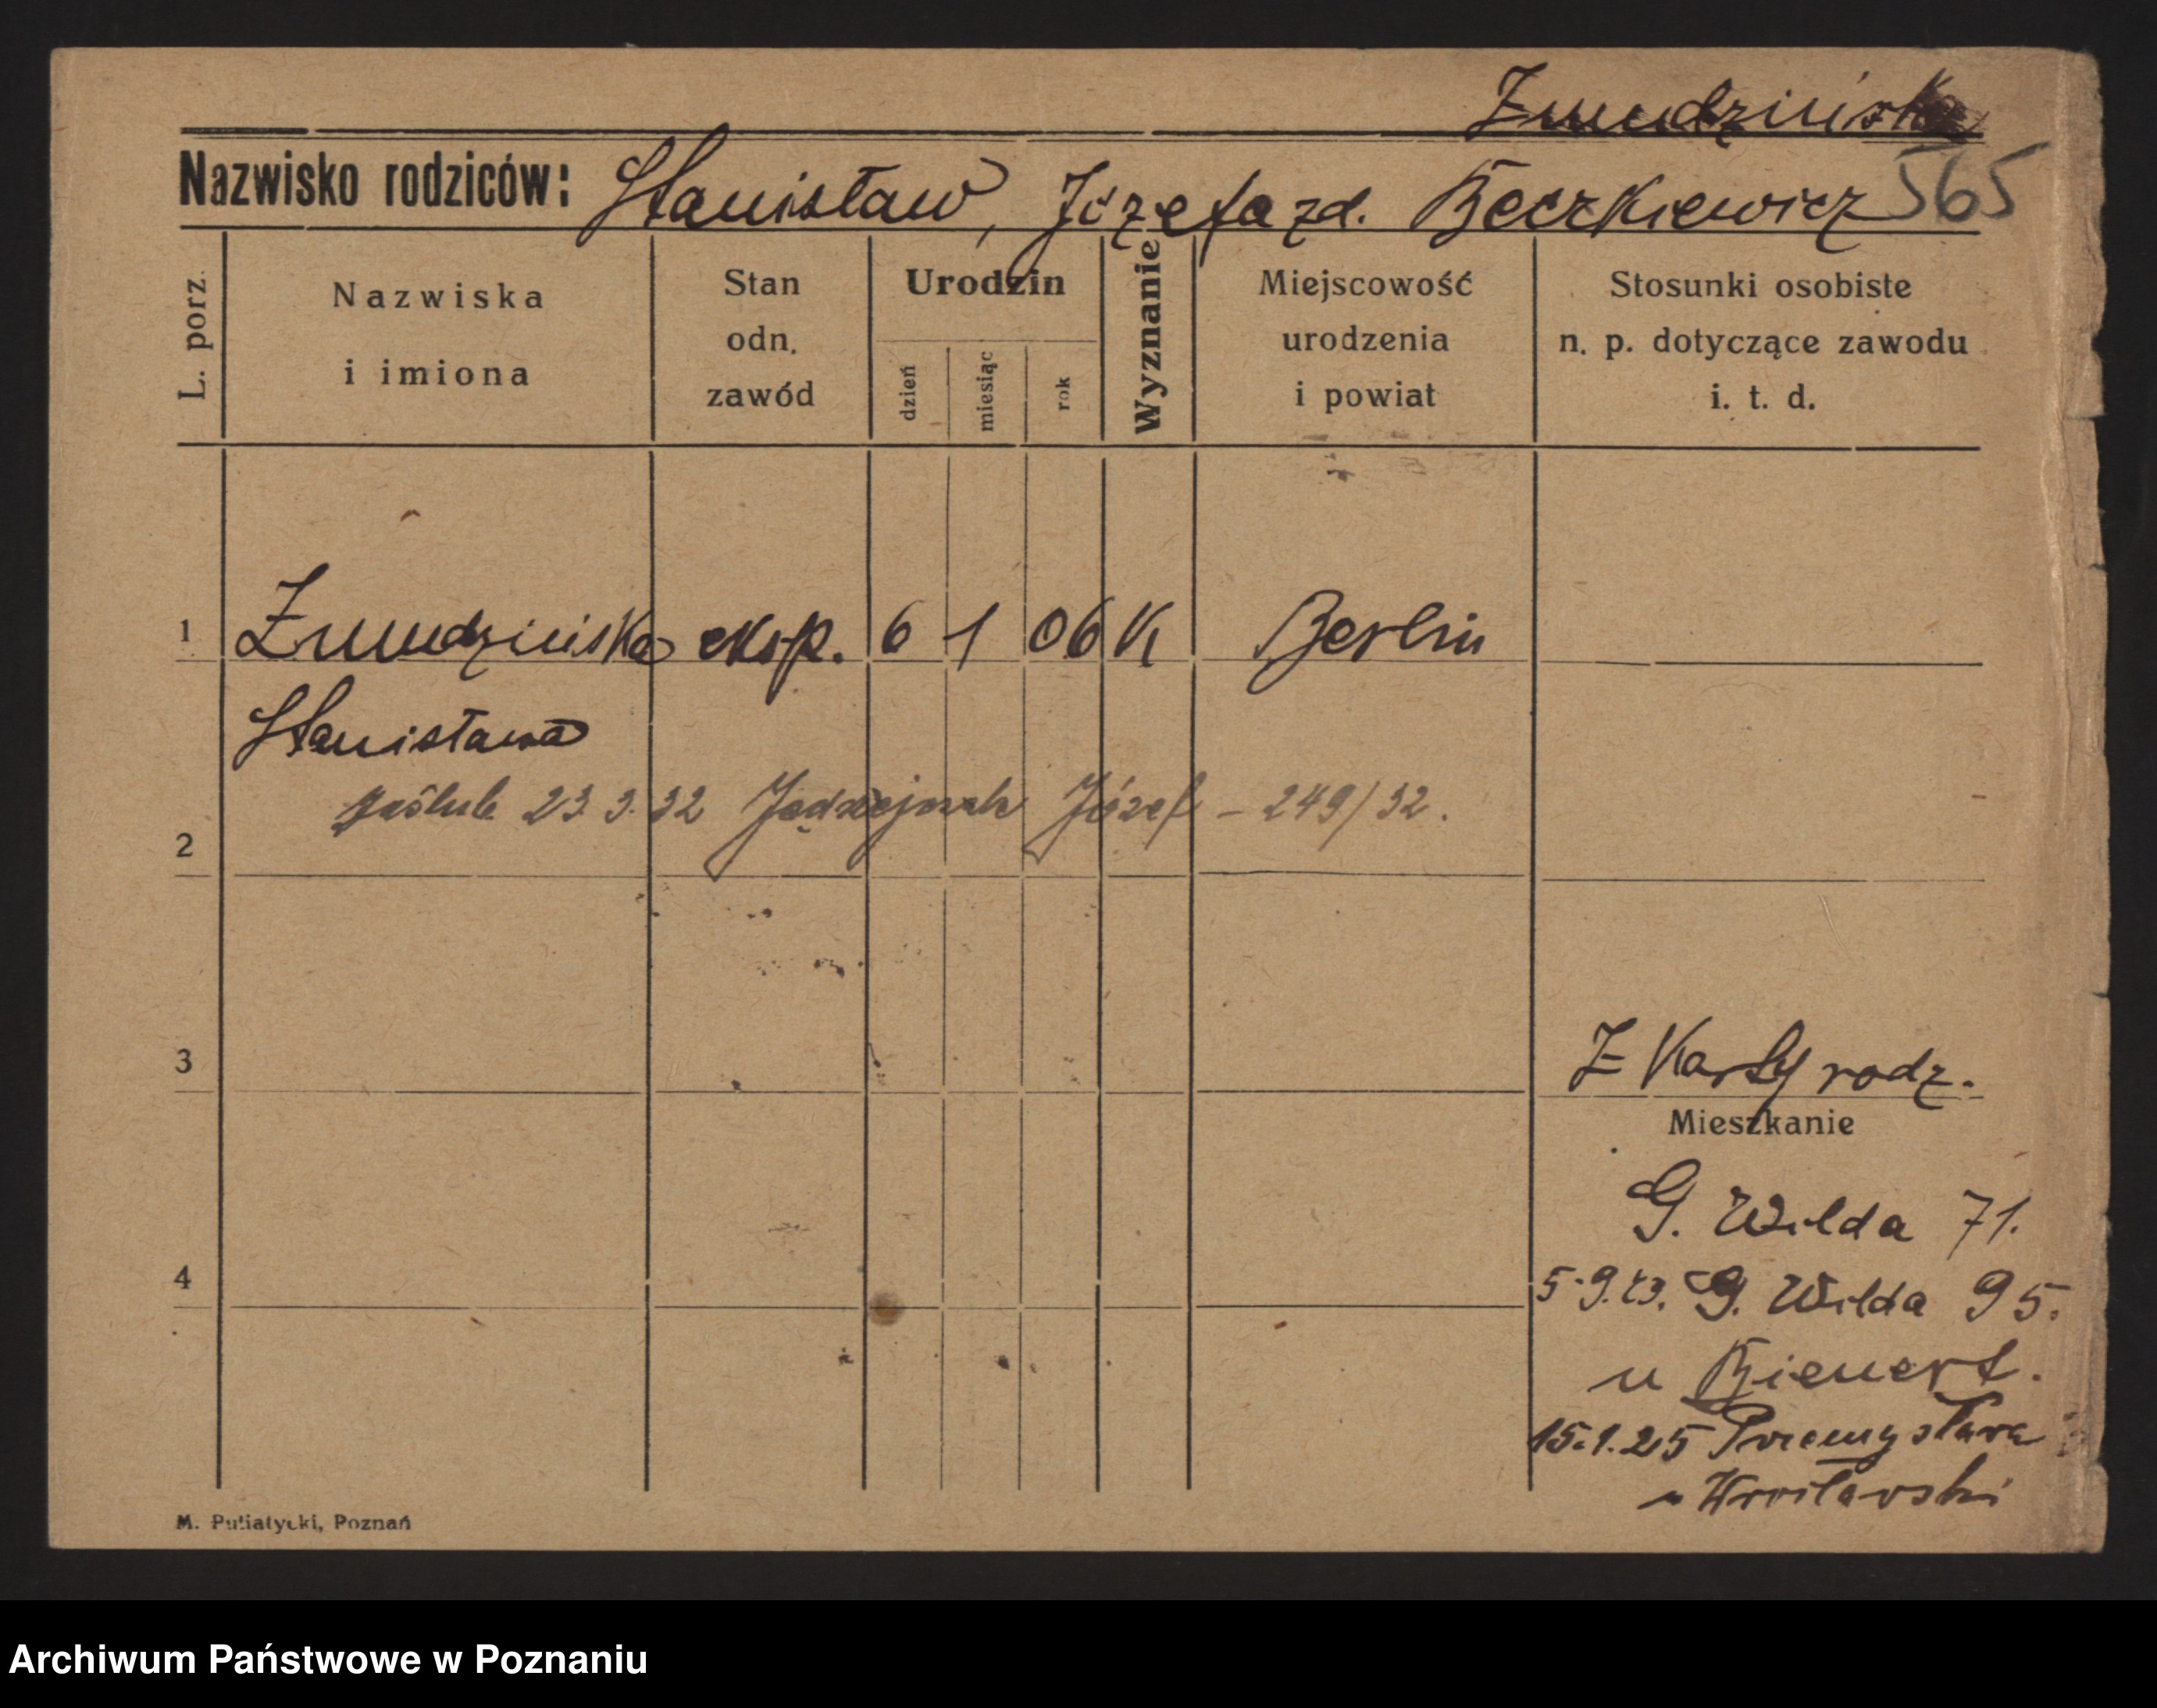 Zmudzińska
Nazwisko rodziców: Stanisław, Józefa zd. Beczkiewicz 565
L. porz.
Nazwiska
i imiona
Stan
odn.
zawód
Urodzin
dzień
miesiąc
rok
Wyznanie
Miejscowość
urodzenia
i powiat
Stosunki osobiste
n. p. dotyczące zawodu
i. t. d.
1 Zmudzińska eksp. 6 1 06 K Berlin
Stanisława
zaślub. 23.3.32 Jędrzejczak Józef - 249/32.
2
3
Z Karty rodz.
Mieszkanie
G. Wilda 71.
4
5.9.23. G. Wilda 95.
u Bienert.
15.1.25 Przemysława
u Wrocławski
M. Putiatycki, Poznań
Archiwum Państwowe w Poznaniu